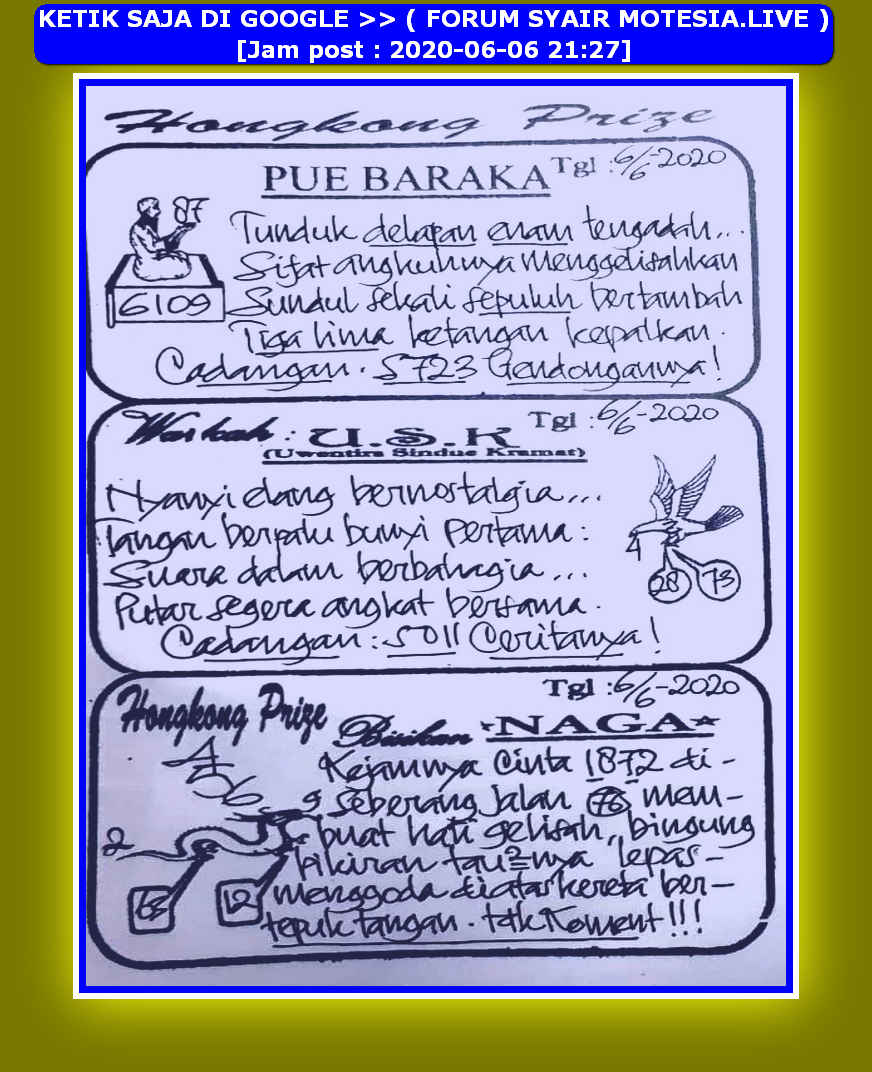 KETIK SAJA DI GOOGLE >> ( FORUM SYAIR MOTESIA.LIVE )
[Jam post : 2020-06-06 21:27]
Hongkong Prize
PUE BARAKA Tgl : 6/6-2020
87
6109
Tunduk delapan enam tengadah...
Sifat angkuhnya menggelisahkan
Sundul sekali sepuluh bertambah
Tiga lima ketangan kepalkan.
Cadangan. 5723 Gendongannya!
Warkah : U.S.K Tgl : 6/6-2020
(Uwentira Sindue Kramat)
Nyanyi dang bernostalgia...
Tangan berpalu bunyi pertama :
Suara dalam berbahagia...
Putar segera angkat bersama.
Cadangan : 5011 Ceritanya!
4
28 73
Hongkong Prize Tgl : 6/6-2020
Bisikan *NAGA*
4
56
9
2
63
12
Kejamnya Cinta 1872 di -
seberang Jalan 76 mem-
buat hati gelisah, bingung
pikiran tau2=nya lepas -
menggoda diatas kereta ber -
tepuk tangan. tdk Koment!!!